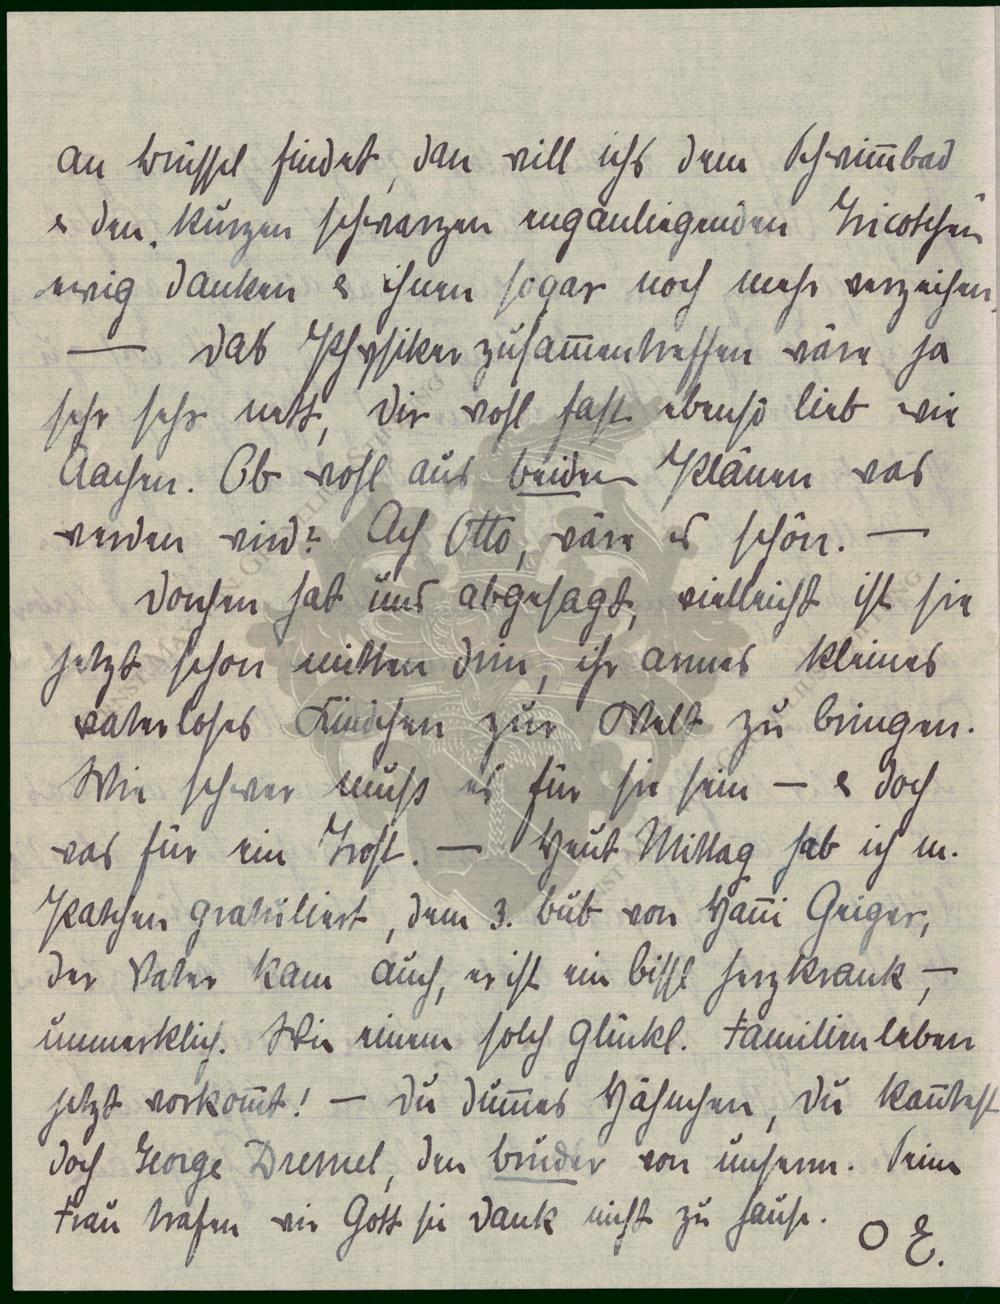 an Brüssel findet, dan will ichs dem Schwim̅bad
& den kurzen schwarzen enganliegenden Tricotchen
ewig danken & ihnen sogar noch mehr verzeihen,
— Das Physikerzusam̅entreffen wäre ja
sehr sehr nett, Dir wohl fast ebenso lieb wie
Aachen. Ob wohl aus beiden Plänen was
werden wird? Ach Otto, wäre es schön. —
Dorchen hat uns abgesagt, vielleicht ist sie
jetzt schon mitten drin, ihr armes kleines
vaterloses Kindchen zur Welt zu bringen.
Wie schwer muss es für sie sein — & doch
was für ein Trost. — Heut Mittag hab ich m.
Patchen gratuliert, dem 3. Bub von Han̅i Geiger,
der Vater kam auch, er ist ein bissl herzkrank, —
unmerklich. Wie einem solch glückl. Familienleben
jetzt vorkom̅t! — Du dum̅es Hähnchen, Du kan̅test
doch George Dremel, den Bruder von unserm. Seine
Frau trafen wir Gott sei Dank nicht zu Hause.
O E.